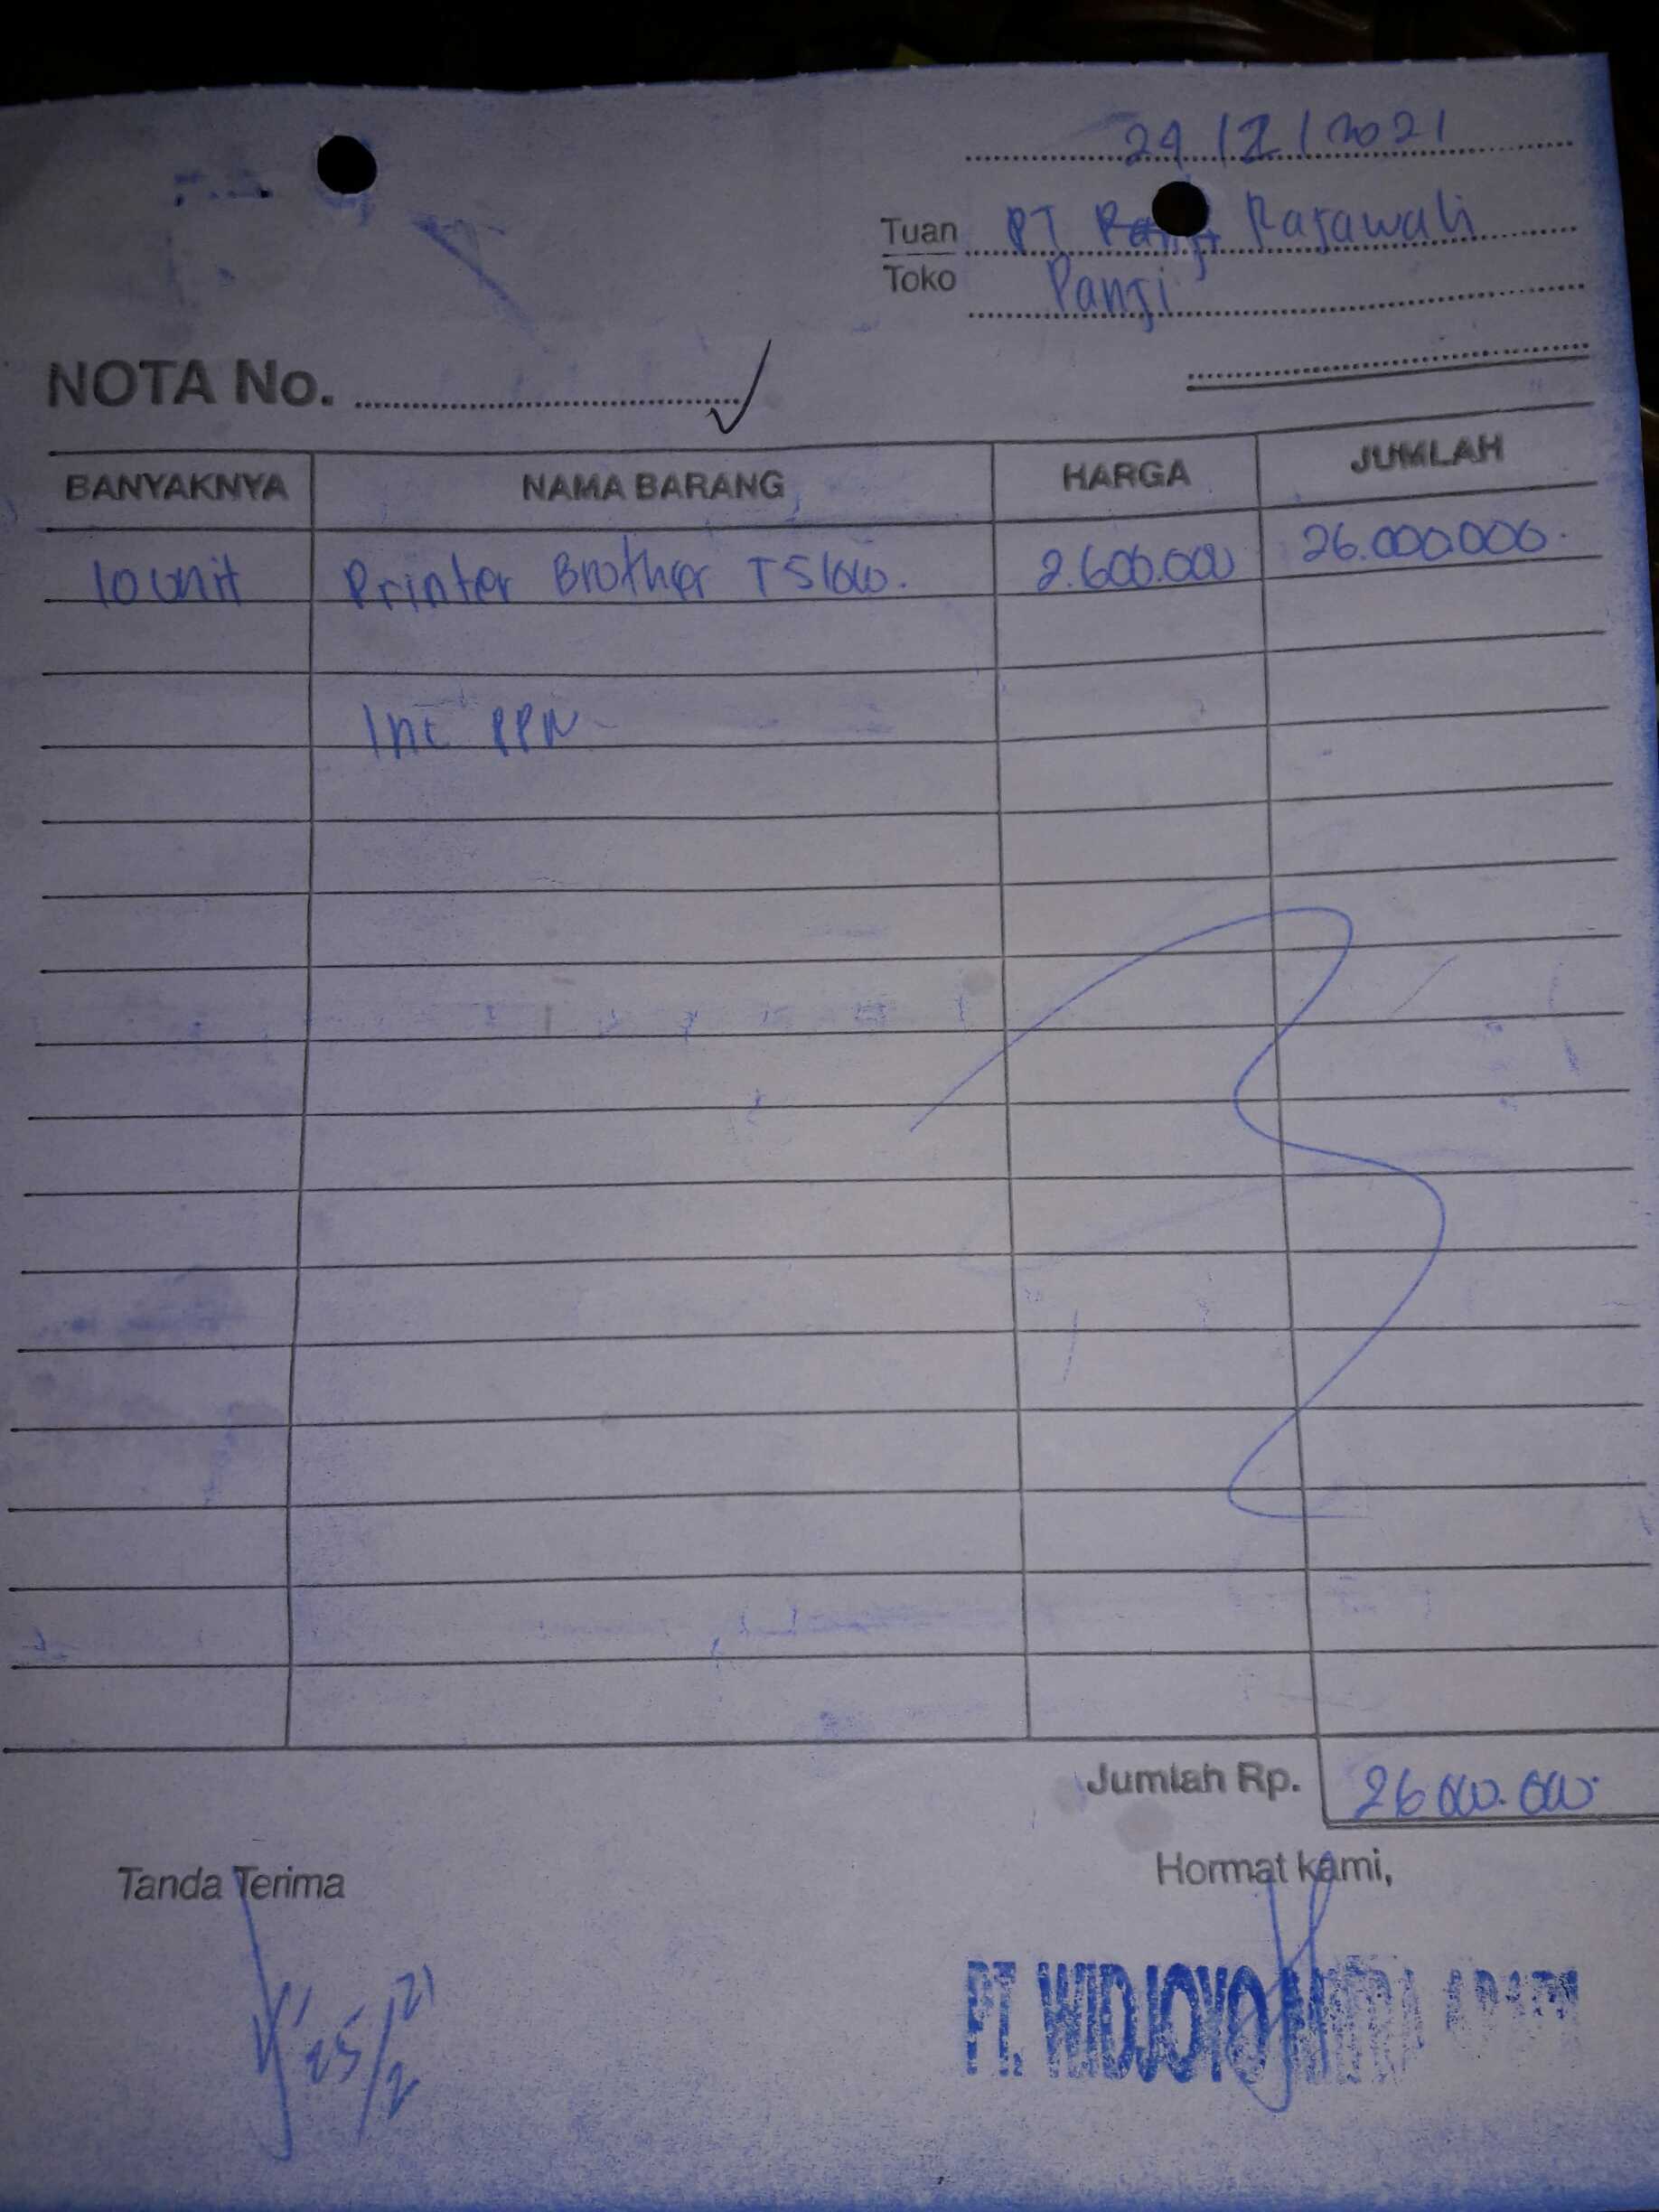 24/2/2021
Tuan PT Rajawali
Toko Panji
NOTA No.
BANYAKNYA NAMA BARANG HARGA JUMLAH
10 unit Printer Brother 2.600.000 26.000.000.
Inc PPN
Jumlah Rp. 26 000.000.
Tanda Terima Hormat kami,
25/2 21
PT. WIDJOYO MITRA